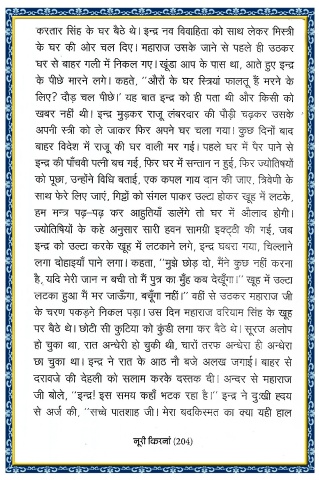 करतार सिंह के घर बैठे थे। इन्द्र नव विवाहिता को साथ लेकर मिस्त्री
के घर की ओर चल दिए। महाराज उसके जाने से पहले ही उठकर
घर से बाहर गली में निकल गए। खूंडा आप के पास था, आते हुए इन्द्र
के पीछे मारने लगे। कहते, “औरों के घर स्त्रियां फालतू हैं मरने के
लिए? दौड़ चल पीछे।’ यह बात इन्द्र को ही पता थी और किसी को
खबर नहीं थी। इन्द्र मुड़कर राजू लंबरदार की पौड़ी चढ़कर उसके
अपनी स्त्री को ले जाकर फिर अपने घर चला गया। कुछ दिनों बाद
बाहर विदेश में राजू की घर वाली मर गई। पहले घर में पैर पाने से
इन्द्र की पाँचवी पत्नी बच गई, फिर घर में सन्तान न हुई, फिर ज्योतिषियों
को पूछा, उन्होंने विधि बताई, एक कपल गाय दान की जाए, त्रिवेणी के
साथ फेरे लिए जाएं, गिट्टों को संगल पाकर उल्टा होकर खूह में लटके,
हम मन्त्र पढ़–पढ़ कर आहुतियाँ डालेंगे तो घर में औलाद होगी।
ज्योतिषियों के कहे अनुसार सारी हवन सामग्री इकट्ठी की गई, जब
इन्द्र को उल्टा करके खूह में लटकाने लगे, इन्द्र घबरा गया, चिल्लाने
लगा दोहाइयाँ पाने लगा। कहता, “मुझे छोड़ दो, मैंने कुछ नहीं करना
है, यदि मेरी जान न बची तो मैं पुत्र का मुँह कब देखूँगा।” खूह में उल्टा
लटका हुआ मैं मर जाऊँगा, बचूँगा नहीं।” वहीं से उठकर महाराज जी
के चरण पकड़ने निकल पड़ा। उस दिन महाराज वरियाम सिंह के खूह
पर बैठे थे। छोटी सी कुटिया को कुंडी लगा कर बैठे थे। सूरज अलोप
हो चुका था, रात अन्धेरी हो चुकी थी, चारों तरफ अन्धेरा ही अन्धेरा
छा चुका था। इन्द्र ने रात के आठ नौ बजे अलख जगाई। बाहर से
दरावजे की देहली को सलाम करके दस्तक दी। अन्दर से महाराज
जी बोले, “इन्द्र! इस समय कहाँ भटक रहा है।” इन्द्र ने दुःखी ह्रदय
से अर्ज की, “सच्चे पातशाह जी। मेरा बदकिस्मत का क्या यही हाल
नूरी किरनां (204)